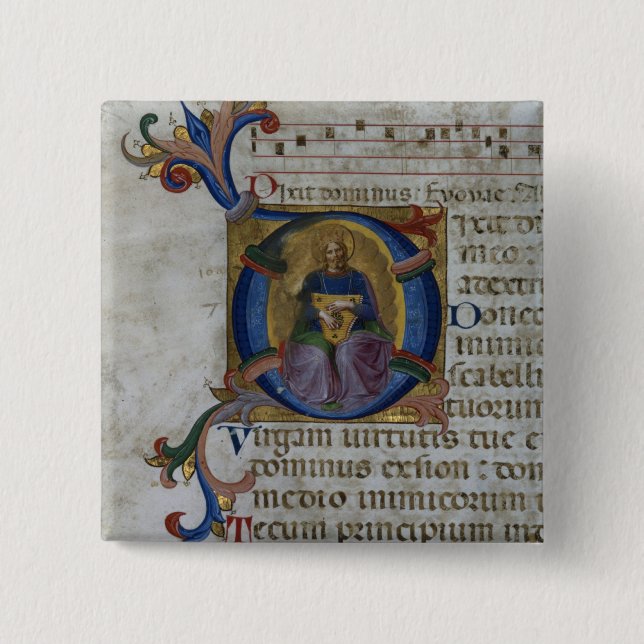 Dixit dominus : Evovae : A
ixit di
meo :
a dextri
Donec
inimic
scabelli
tuorum
Virgam virtutis tue e
dominus exsion : dom
medio inimicorum
Tecum principium in